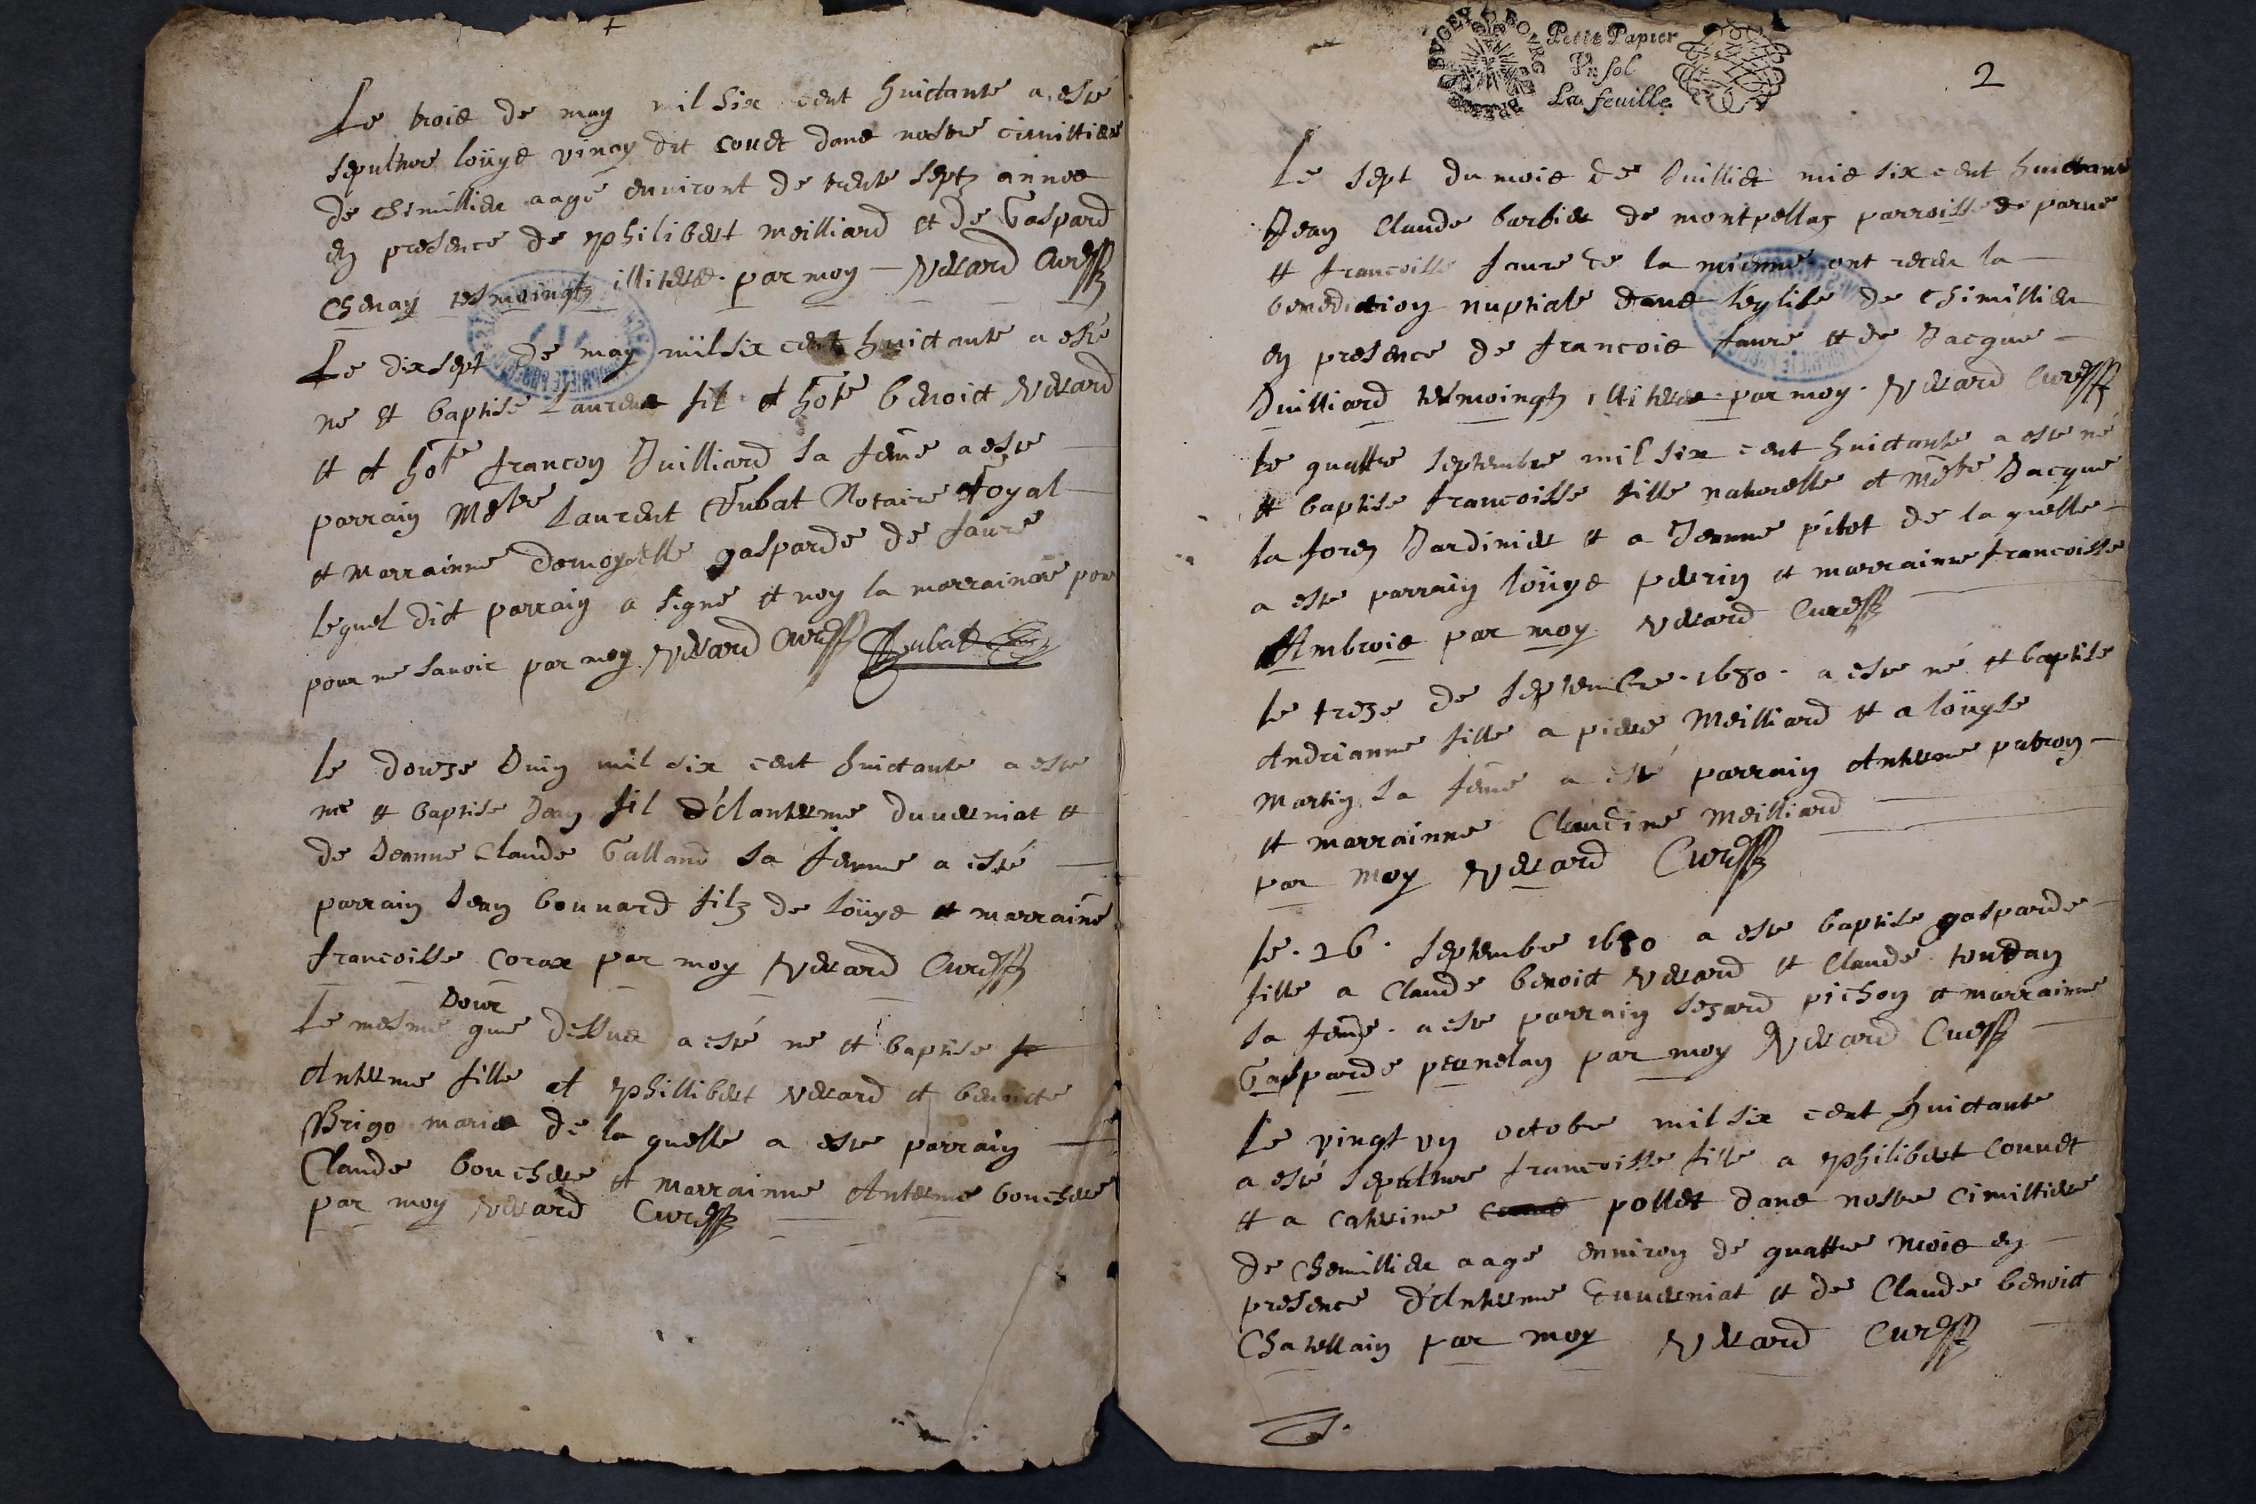 Le trois de may mil six cent huictante a esté
sepulture loüys vincy dit couet dans nostre cimittiere
de chimillieu aagé environt de trente septz annés
en presence de philibert meilliard et de Gaspard
Chenay tesmoingtz illiteres par moy Nerard Curé
Le dix sept de may mil six cent huictante a esté
né et baptisé Laurens fil et hote benoict Nerard
et et hote francoy Juilliard sa feme a este
parrain Mestre Laurent Jubat Notaire Royal
et marrainne domoyselle gasparde de faure
lequel dict parrain a signé et noy la marrainne pour
pour ne savoir par moy Nerard Curé Jubat
Le douze Juin mil six cent huictante a este
né et baptisé Jean fil d'Anterme duverniat et
de Jeanne Claude Galland sa femme a esté
parrain Jean bonnard filz de loüys et marraine
francoisse Corax par moy Nerard Curé
Le mesme jour que dessus a esté né et baptisé
Anterme fille et phillibert Nerard et benoicte
Brigo mariés de la quelle a este parrain
Claude bouchere et marrainne Anterme bouchere
par moy Nerard Curé
BUGEY BOURG BRESSE
Petit Papier
Un sol
La feuille
2
Le sept du mois de Juillet mil six cent huictante
Jean Claude barbier de montpellaz parroisse de parve
et francoisse faure de la mienne ont receu la
benediction nuptiale dans l'eglise de chimillieu
en presence de francois faure et de Jacque
Juilliard tesmoingtz illiteres par moy Nerard Curé
Le quattre septembre mil six cent huictante a este né
et baptisé francoisse fille naturelle et mestre Jacque
la forez Jardinier et a Jeanne pitot de laquelle
a este parrain loüys perrin et marrainne francoisse
Ambrois par moy Nerard Curé
Le treze de septembre 1680 a este né et baptise
Andrianne fille a pierre Meilliard et a loüyse
Martin sa feme a esté parrain Anterme patron
et marrainne Claudine Meilliard
par moy Nerard Curé
Le 26 septembre 1680 a este baptise gasparde
fille a Claude benoict Nerard et Claude
sa feme a este parrain sezard pichon et marrainne
Gasparde pernelay par moy Nerard Curé
Le vingt un octobre mil six cent huictante
a esté sepulture francoisse fille a philibert couuet
et a caterine pollet dans nostre cimittiere
de chemillieu aagé environ de quattre mois en
presence d'Anterme duverniat et de Claude benoict
Chatellain par moy Nerard Curé